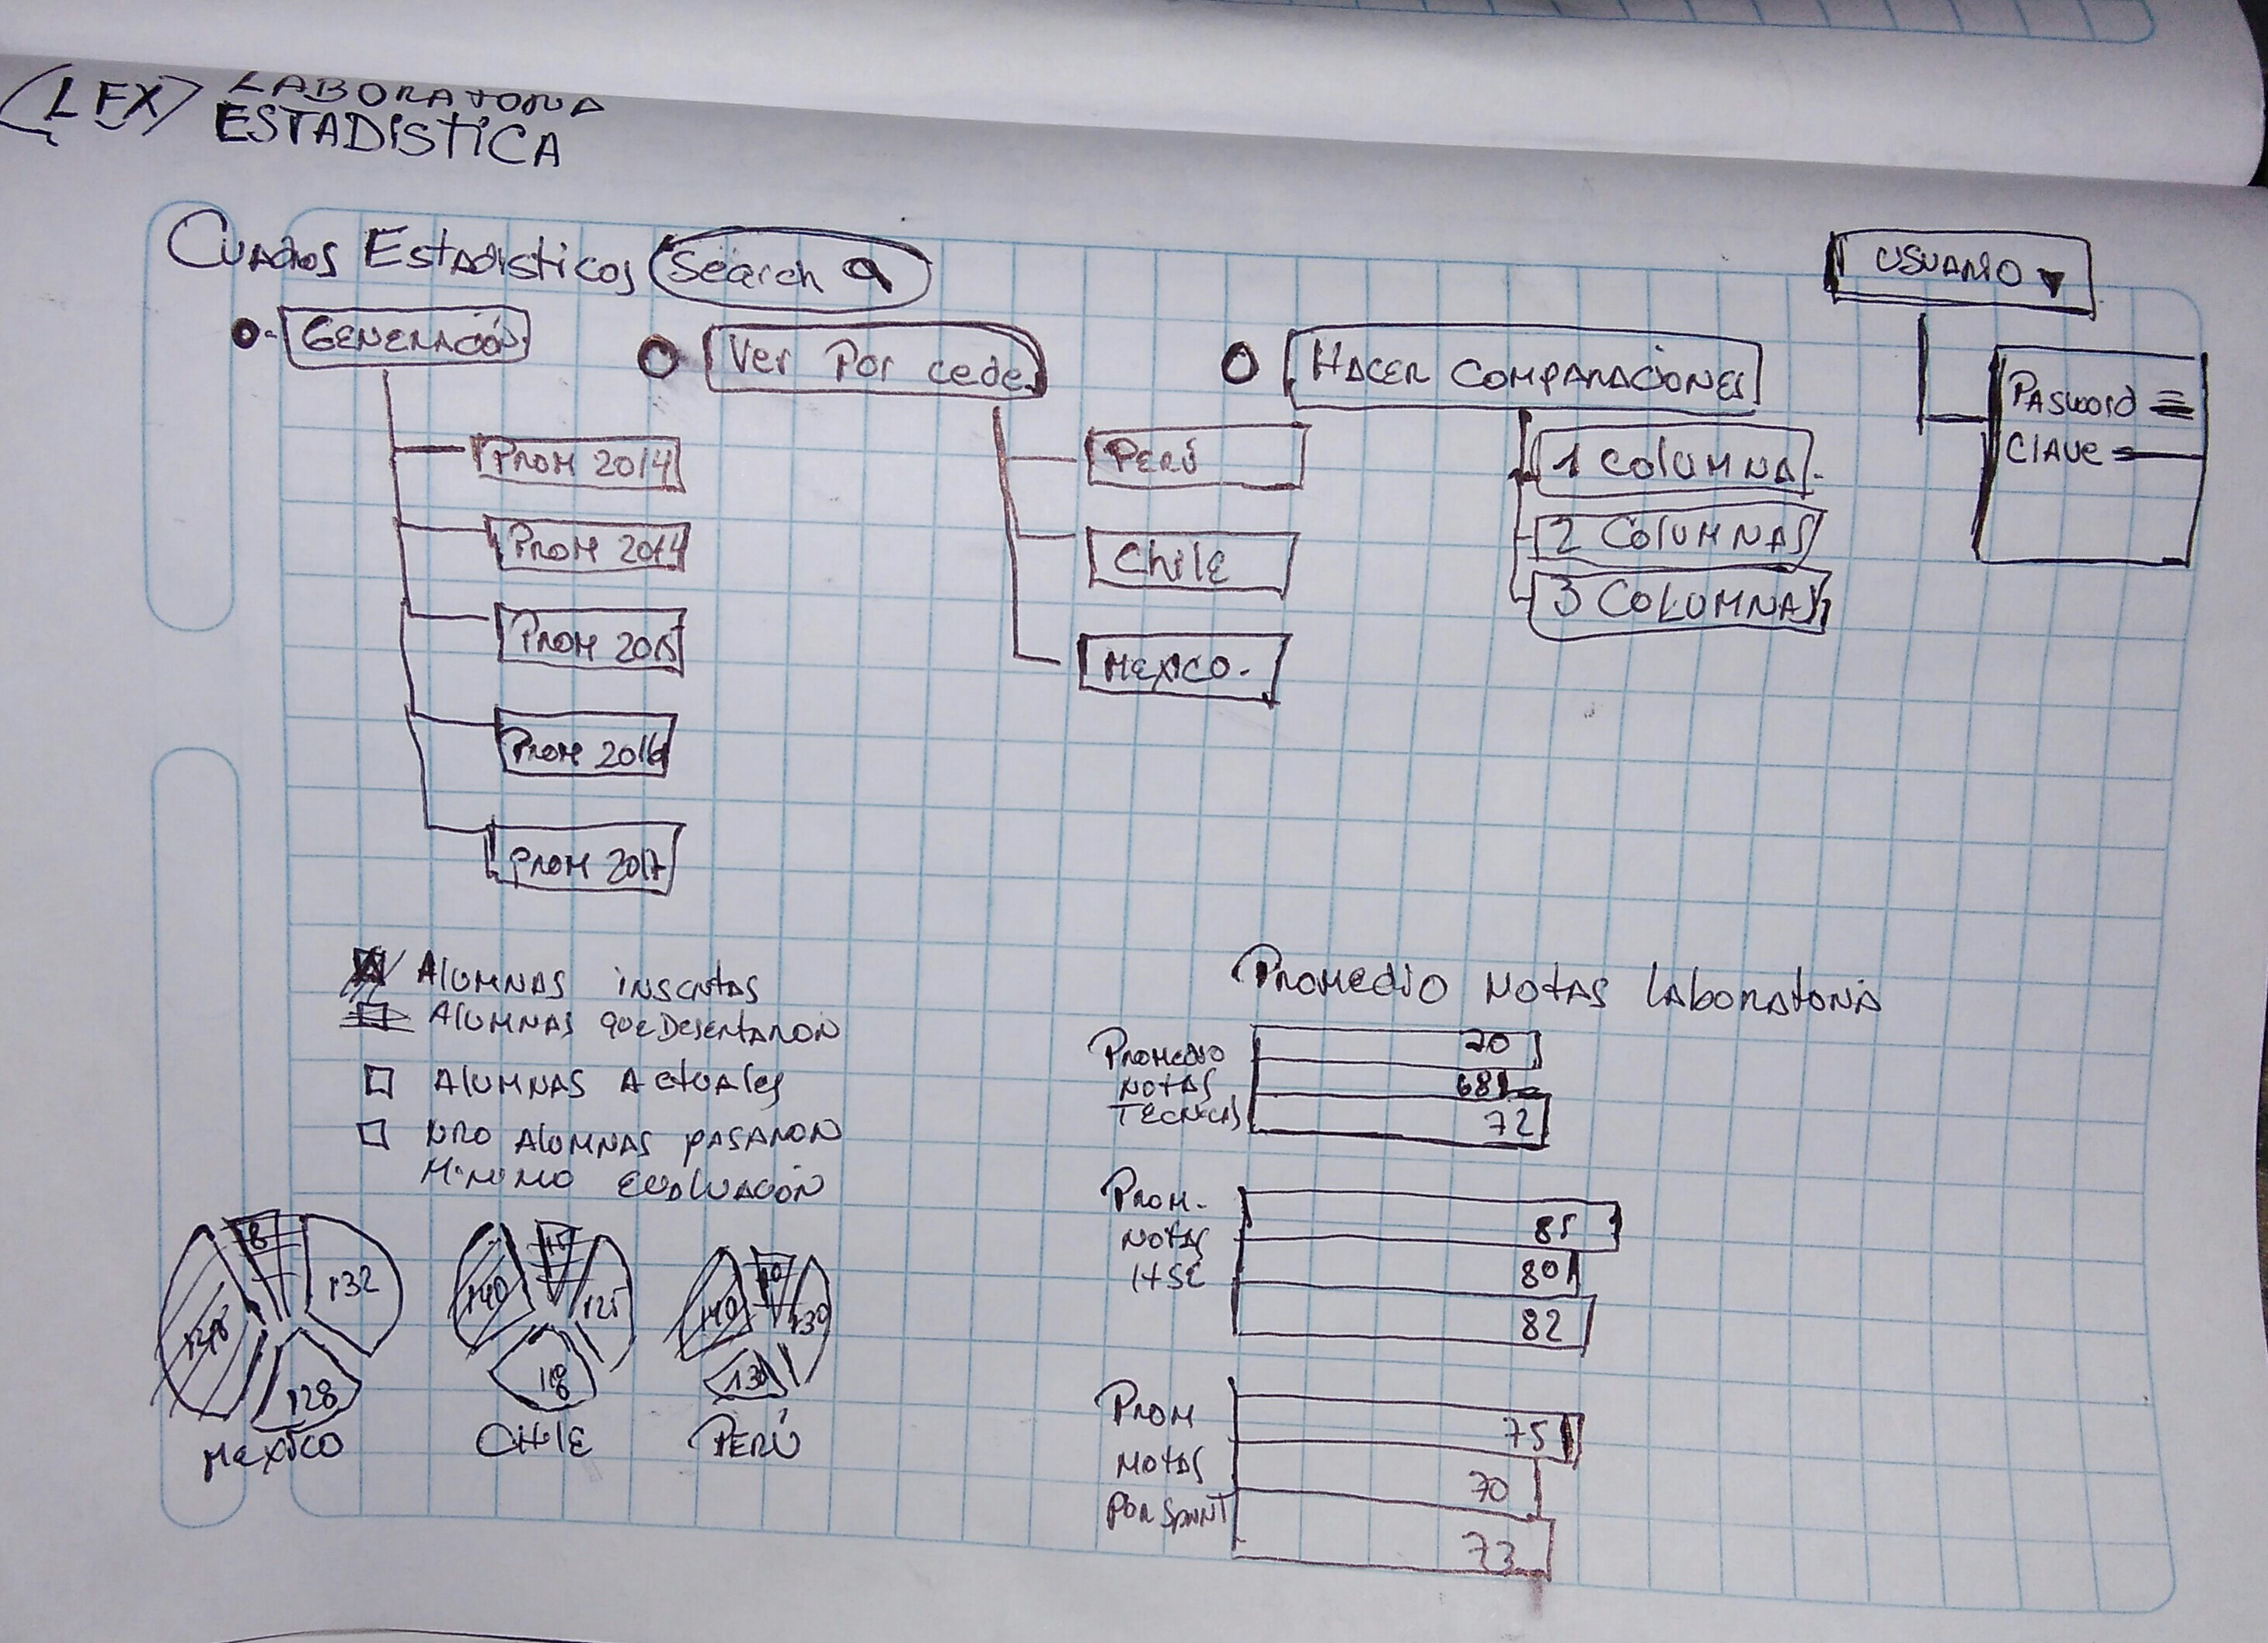 LFX
LABORATORIA
ESTADISTICA
Cuadros Estadisticos Search
USUARIO
GENERACIÓN
Ver Por cede
HACER COMPARACIONES
Pasword
CLAVE
PROM 2014
PROM 2014
PROM 2015
PROM 2016
PROM 2017
PERÚ
Chile
MEXICO.
1 COLUMNA.
2 COLUMNAS
3 COLUMNAS
ALUMNAS inscritas
ALUMNAS que Desertaron
ALUMNAS Actuales
NRO ALUMNAS PASARON
MINIMO EVALUACIÓN
8
132
128
MEXICO
140
15
125
118
CHILE
140
10
130
PERÚ
PROMEDIO NOTAS LABORATORIA
PROMEDIO
NOTAS
TECNICAS
70
68
72
PROM.
NOTAS
HSE
85
80
82
PROM
NOTAS
POR SPRINT
75
70
73